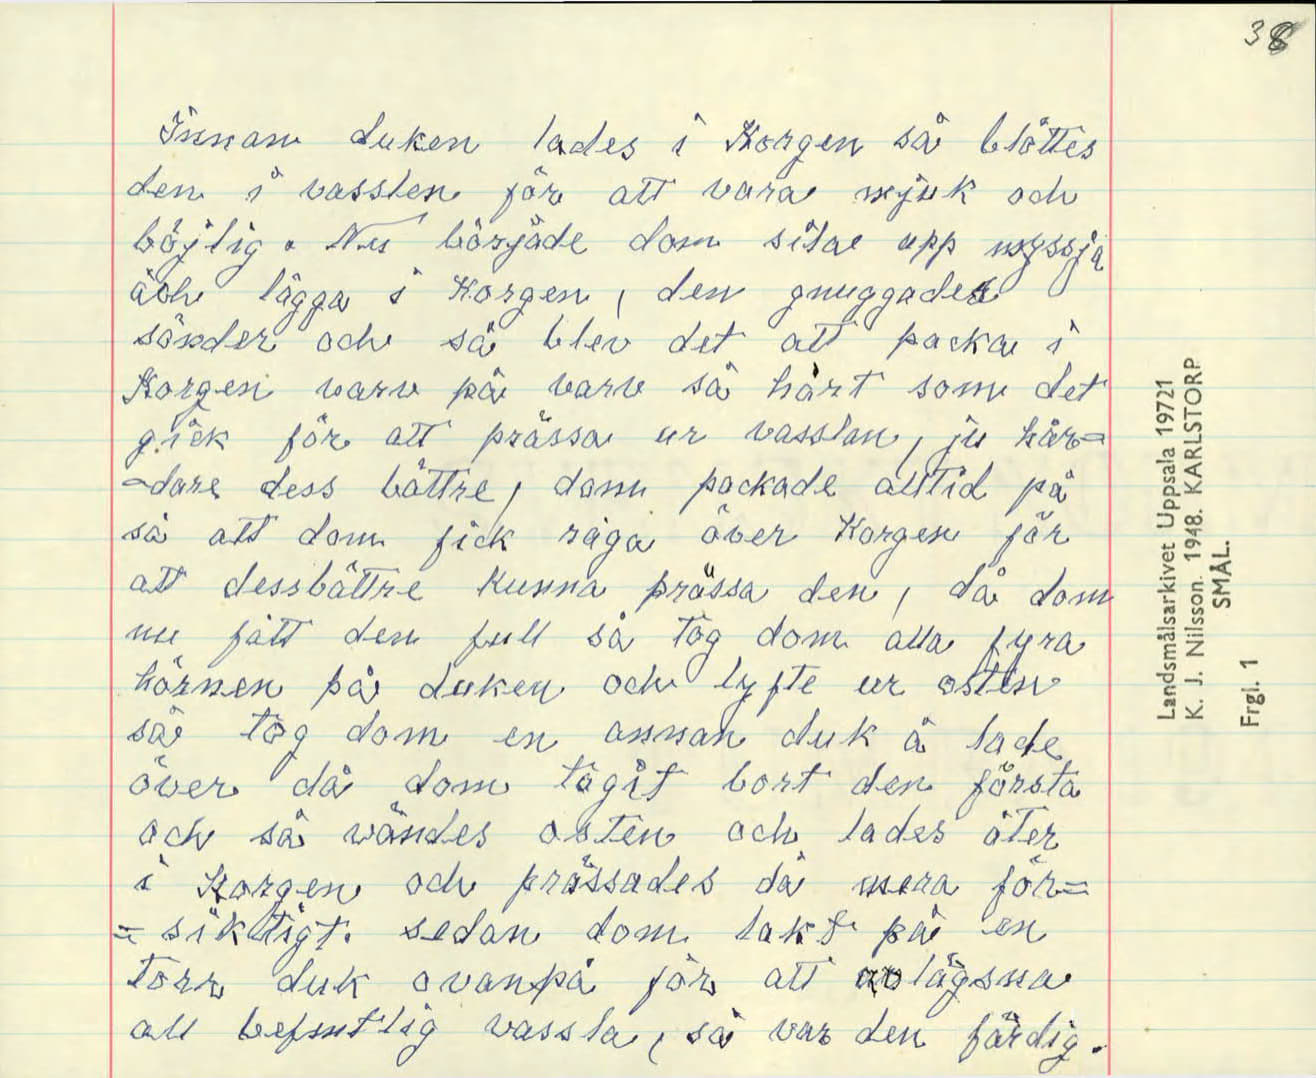 38
Innan duken lades i Korgen så blöttes
den i vasslen för att vara mjuk och
böjlig. Nu började dom sila upp myssja
och lägga i Korgen, den gnuggades
sönder och så blev det att packa i
Korgen varv på varv så hårt som det
gick för att prässa ur vasslan, ju hår=
=dare dess bättre, dom packade alltid på
så att dom fick råga över Korgen för
att dessbättre kunna prässa den, då dom
nu fått den full så tog dom alla fyra
hörnen på duken och lyfte ur osten
så tog dom en annan duk å lade
över då dom tagit bort den första
och så vändes osten och lades åter
i Korgen och prässades då mera för=
=siktigt. sedan dom lakt på en
torr duk ovanpå för att avlägsna
all befintlig vassla, så var den färdig.
Landsmålsarkivet Uppsala 19721
K. J. Nilsson. 1948. KARLSTORP
SMÅL.
Frgl. 1